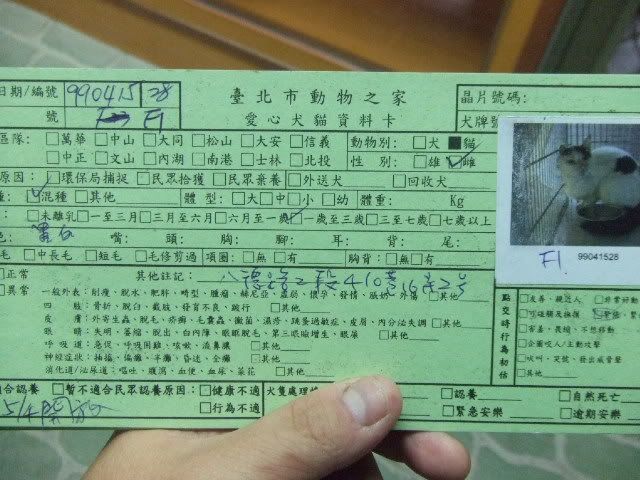 臺北市動物之家
愛心犬貓資料卡
日期/編號 990415 28
號 F1
晶片號碼:
犬牌號
區隊: □萬華□中山□大同□松山□大安□信義 動物別: □犬■貓
□中正□文山□內湖□南港□士林□北投 性 別: □雄□雌
原因: □環保局捕捉□民眾拾獲□民眾棄養□外送犬 □回收犬
種: □混種□其他 體 型: □大□中□小□幼 體重: Kg
: □未離乳□一至三月□三月至六月□六月至一歲□一歲至三歲□三至七歲□七歲以上
色: 嘴: 頭: 胸: 腳: 耳: 背: 尾:
毛□中長毛□短毛□毛修剪過 項圈:□無□有 胸背:□無□有
F1. 99041528
□正常 其他註記: 八德路2段410巷16弄2号
□異常 一般外表:削瘦、脫水、肥胖、畸型、腫瘤、赫尼亞、虛弱、懷孕、發情、漲奶、外傷□其他
四 肢:骨折、脫臼、截肢、發育不良、跛行 □其他
皮 膚:外寄生蟲、脫毛、疥癬、毛囊蟲、黴菌、濕疹、跳蚤過敏症、皮屑、內分泌失調□其他
眼 睛:失明、萎縮、脫出、白內障、眼瞼脫毛、第三眼瞼增生、眼屎 □其他
呼吸道:急促、呼吸困難、咳嗽、流鼻膿 □其他
神經症狀:抽搐、偏癱、半癱、昏迷、全癱 □其他
消化道/泌尿道:嘔吐、腹瀉、血便、血尿、菜花 □其他
點交時行為初估
□友善、親近人 □非常好動
□可碰觸及撫摸
□害羞、畏縮、不想移動
□企圖咬人/主動攻擊
□吠叫、哭號、發出威脅聲
□其他
合認養 □暫不適合民眾認養原因: □健康不適
□行為不適
5/4開放
犬隻處理
□認養 □自然死亡
□緊急安樂 □逾期安樂